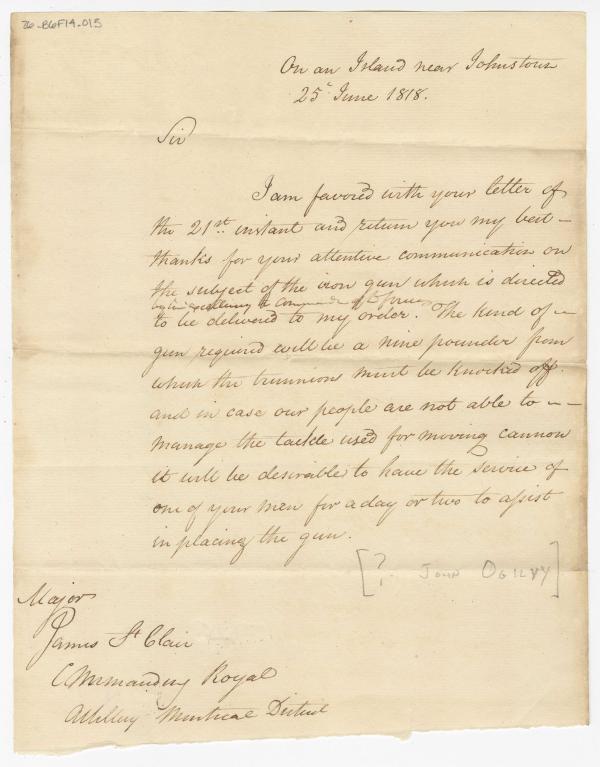 26-B6F14-015
On an Island near Johnstown
25th June 1818.
Sir
I am favored with your letter of
the 21st. instant and return you my best
thanks for your attentive communication on
the subject of the iron gun which is directed
by his Excellency the Commander of the forces
to be delivered to my order. The kind of
gun required will be a nine pounder from
which the trunnions must be knocked off.
and in case our people are not able to
manage the tackle used for moving cannon
it will be desirable to have the service of
one of your men for a day or two to assist
in placing the gun.
[? JOHN OGILVY]
Major
James St Clair
Commanding Royal
Artillery Montreal District